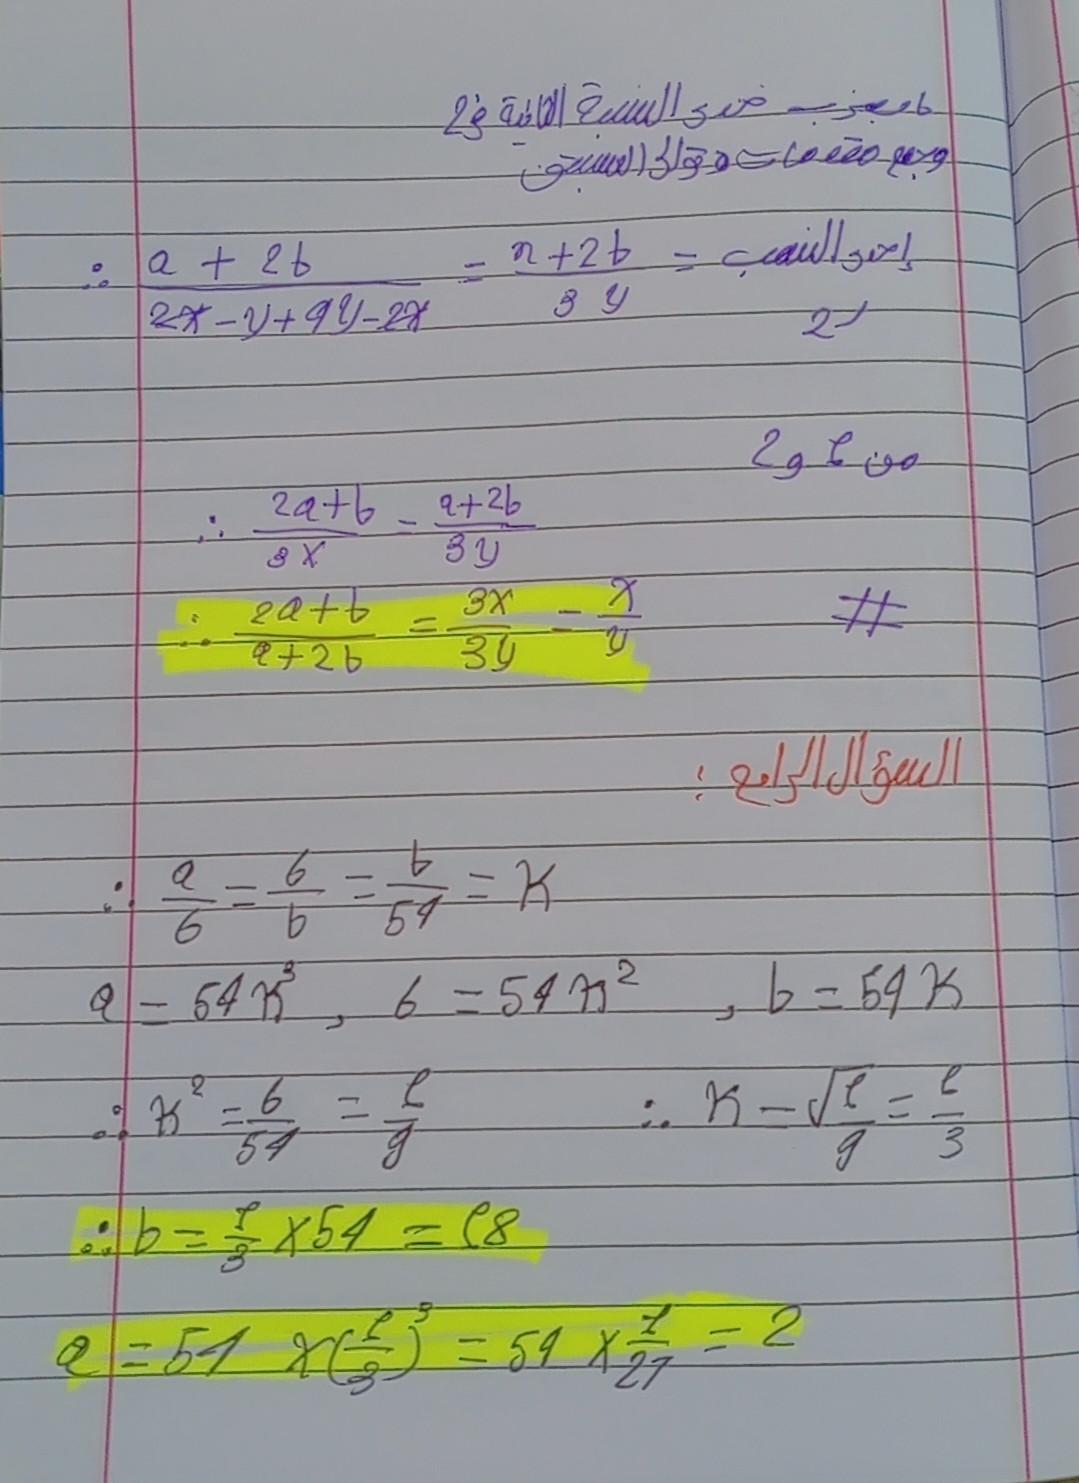 بضرب حدى النسبة الثانية في 2
وجمع مقدمات وتوالى النسبتين
∴ a + 2b / 2x - y + 4y - 2x = a + 2b / 3y = إحدى النسب
2
من 1 و 2
∴ 2a + b / 3x = a + 2b / 3y
∴ 2a + b / a + 2b = 3x / 3y = x / y #
السؤال الرابع :
∴ a/6 = 6/b = b/54 = K
a = 54K³ , 6 = 54K² , b = 54K
∴ K² = 6/54 = 1/9 ∴ K = √1/9 = 1/3
∴ b = 1/3 × 54 = 18
a = 54 × (1/3)³ = 54 × 1/27 = 2